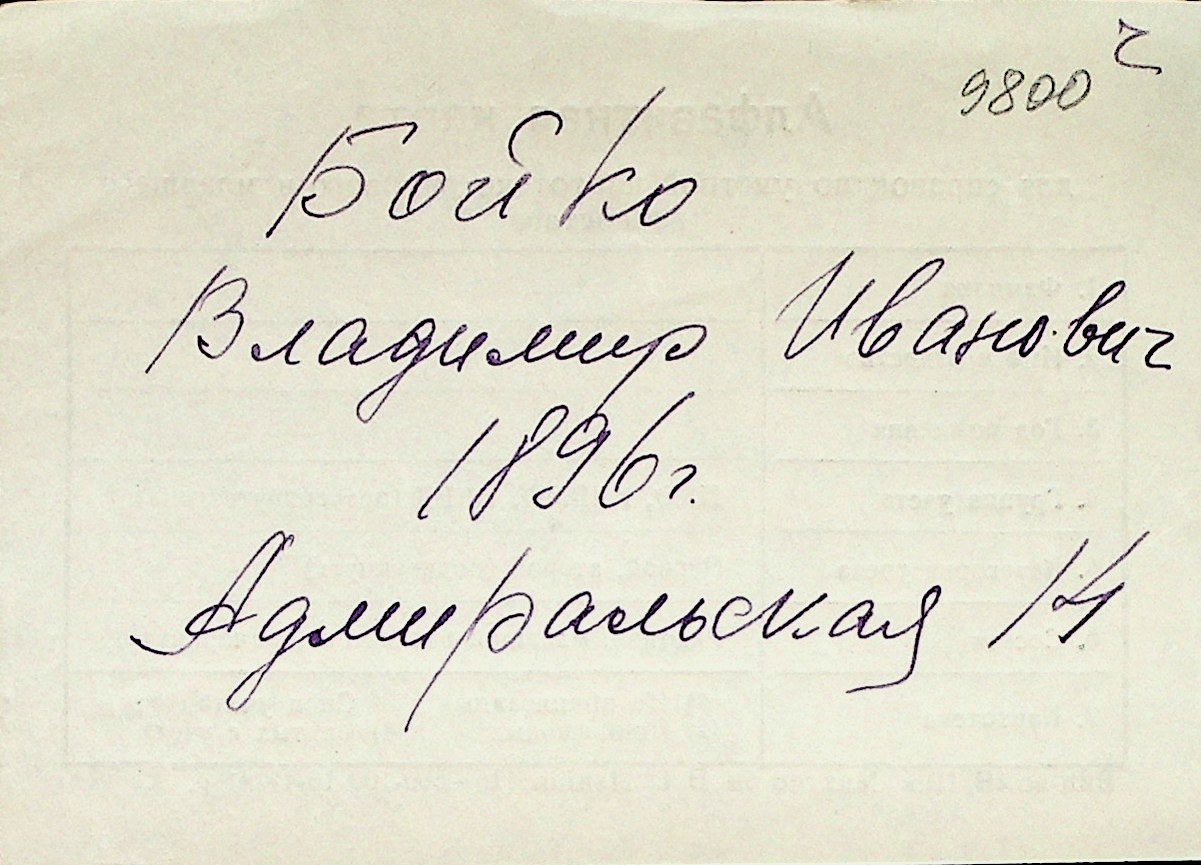 9800 ч
Бойко
Владимир Иванович
1896 г.
Адмиральская 14